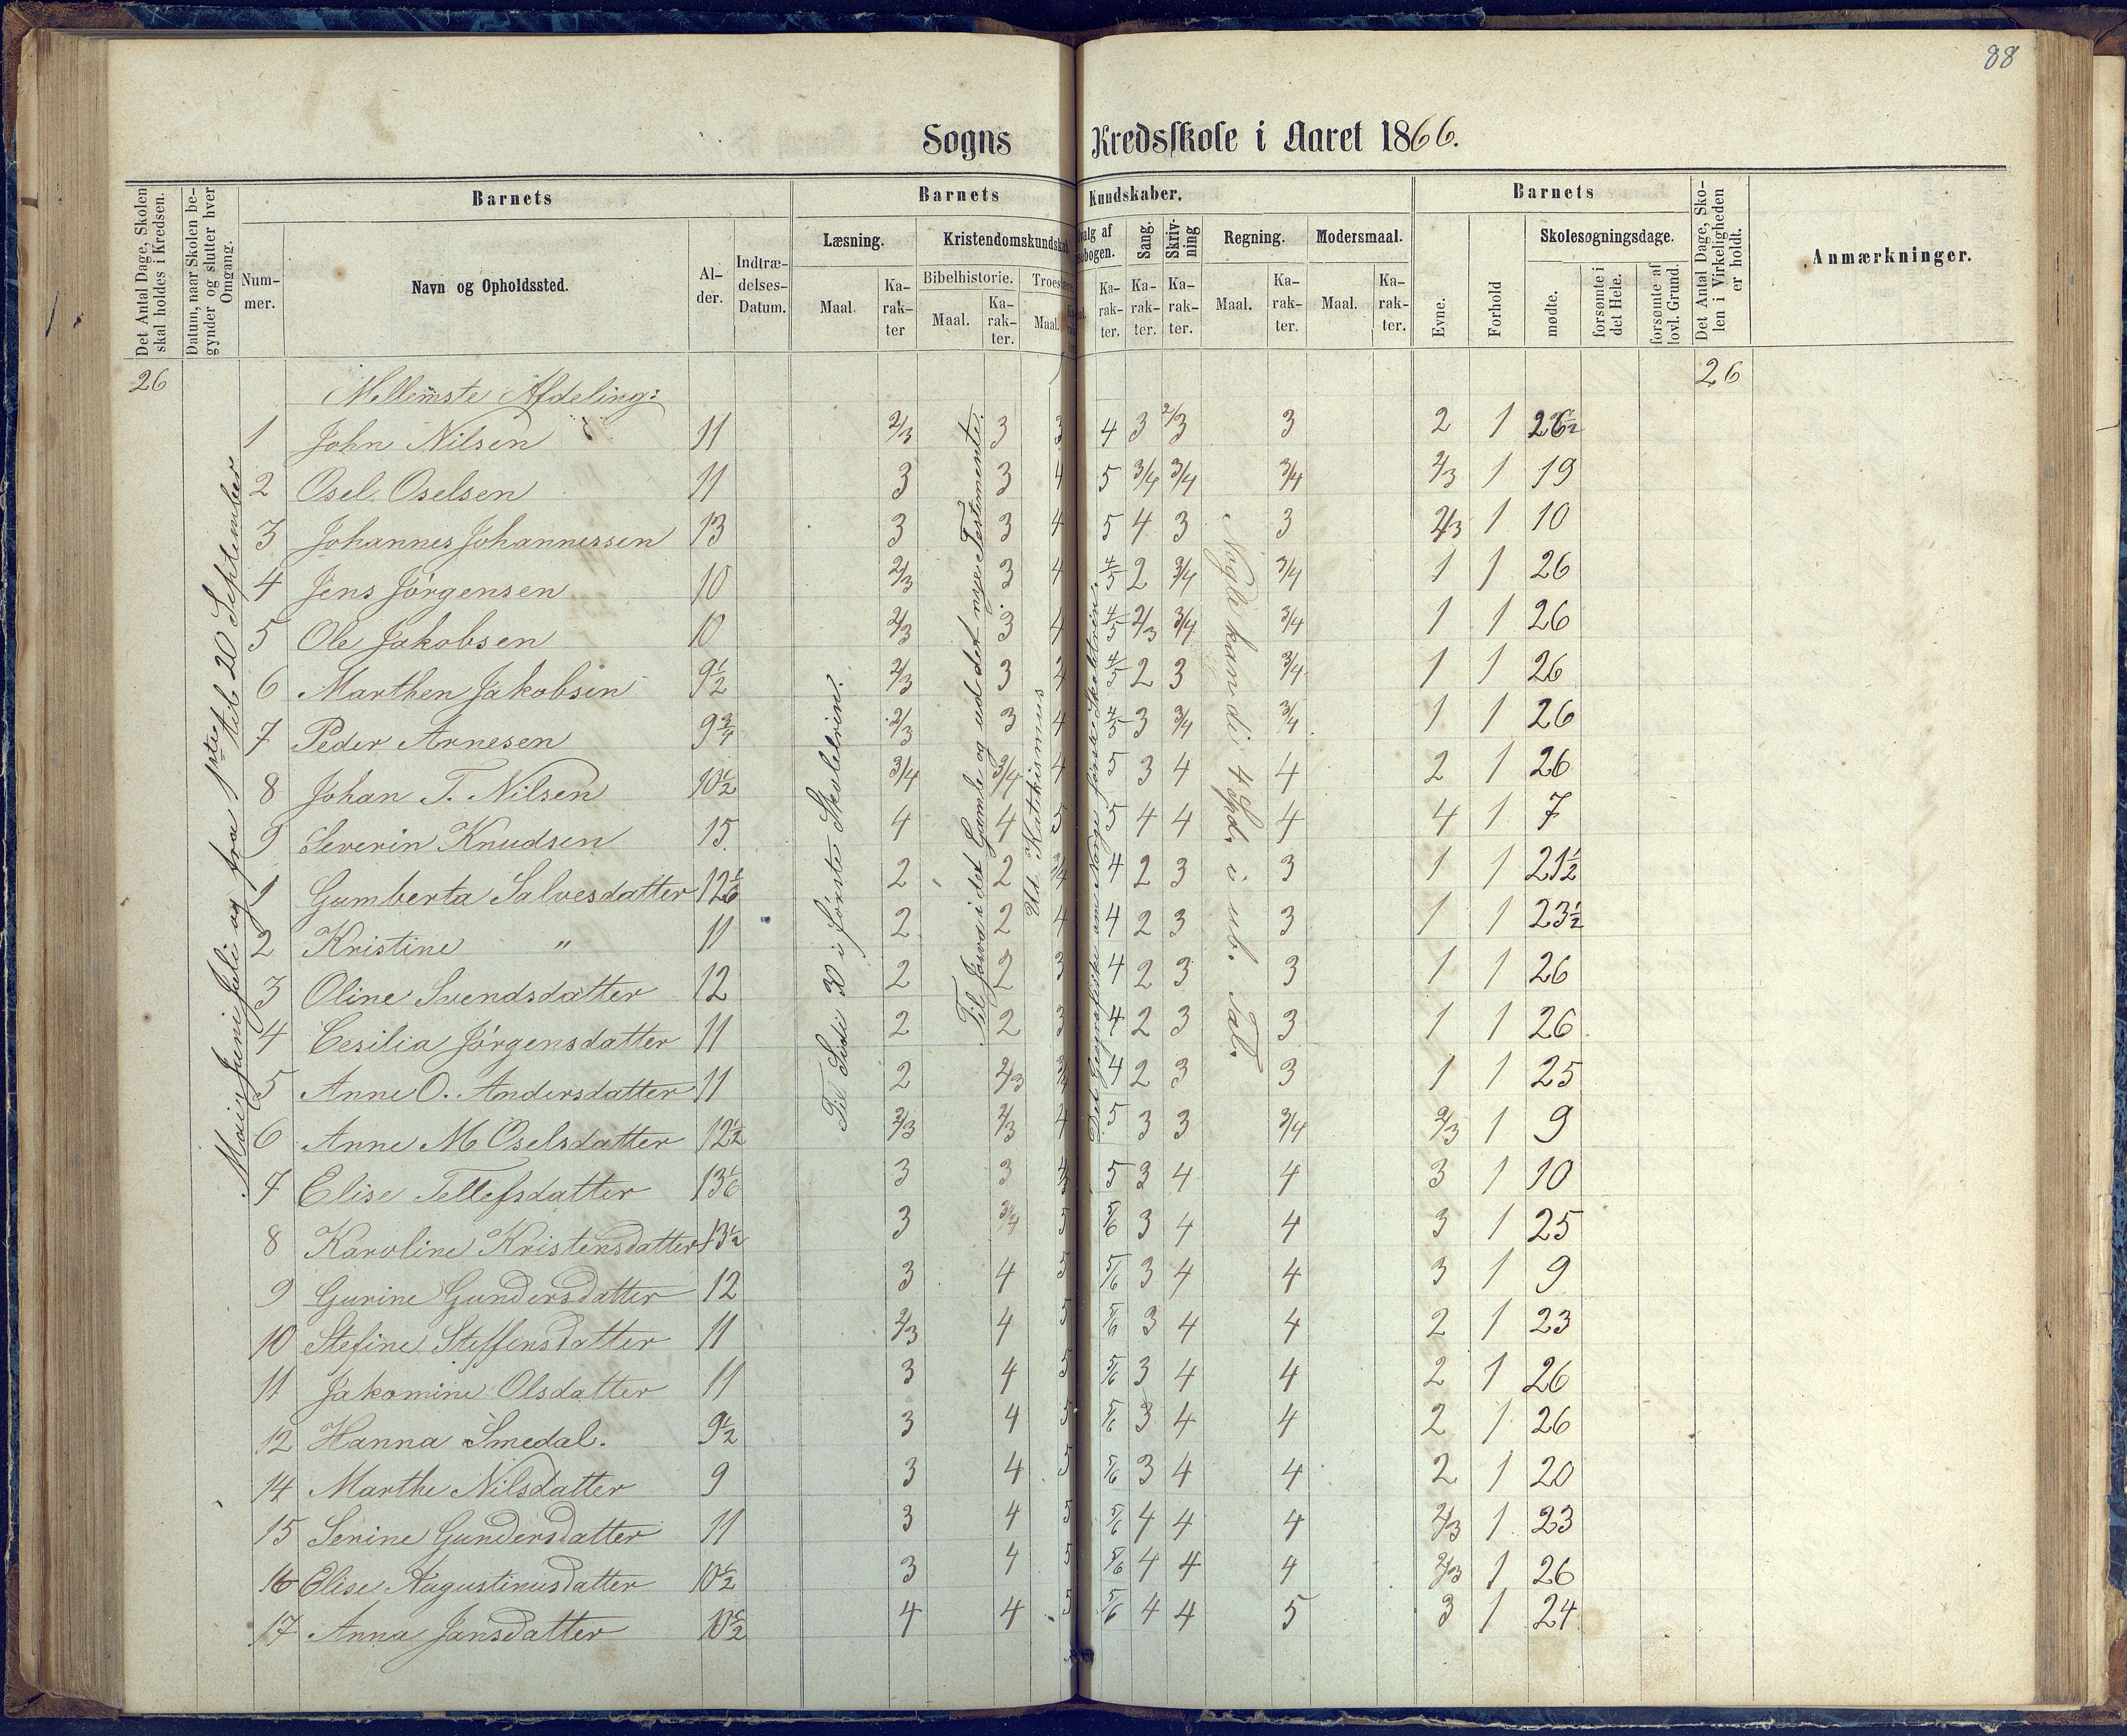 88
Sogns Kredsskole i Aaret 1866.
Det Antal Dage, Skolen skal holdes i Kredsen.
Datum, naar Skolen begynder og slutter hver Omgang.
Barnets
Nummer.
Navn og Opholdssted.
Alder.
Indtrædelses-Datum.
Barnets Kundskaber.
Læsning.
Maal.
Karakter
Kristendomskundskab.
Bibelhistorie.
Maal.
Karakter.
Troes
Maal.
valg af
Karakter.
Sang.
Karakter.
Skrivning
Karakter.
Regning.
Maal.
Karakter.
Modersmaal.
Maal.
Karakter.
Barnets
Evne.
Forhold
Skolesøgningsdage.
mødte.
forsømte i det Hele.
forsømte af lovl. Grund.
Det Antal Dage, Skolen i Virkeligheden er holdt.
Anmærkninger.
26 Mellemste Afdeling: 26
1 John Nilsen 11 2/3 3 3 4 3 2/3 3 2 1 26½
2 Osel Oselsen 11 3 3 4 5 3/4 3/4 3/4 2/3 1 19
3 Johannes Johannessen 13 3 3 4 5 4 3 3 2/3 1 10
4 Jens Jörgensen 10 2/3 3 4 4/5 2 3/4 3/4 1 1 26
5 Ole Jakobsen 10 2/3 3 4 4/5 2/3 3/4 3/4 1 1 26
6 Marthen Jakobsen 9½ 2/3 3 4 4/5 2 3 3/4 1 1 26
7 Peder Arnesen 9¾ 2/3 3 4 4/5 3 3/4 3/4 1 1 26
8 Johan T. Nilsen 10½ 3/4 3/4 4 5 3 4 4 2 1 26
9 Severin Knudsen 15 4 4 5 5 4 4 4 4 1 7
1 Gumberta Salvesdatter 12 1/6 2 2 3/4 4 2 3 3 1 1 21½
2 Kristine " 11 2 2 4 4 2 3 3 1 1 23½
3 Oline Svendsdatter 12 2 2 3 4 2 3 3 1 1 26
4 Cesilia Jörgensdatter 11 2 2 3 4 2 3 3 1 1 26
5 Anne O. Andersdatter 11 2 2/3 3/4 4 2 3 3 1 1 25
6 Anne M Oselsdatter 12½ 2/3 2/3 4 5 3 3 3/4 2/3 1 9
7 Elise Tellefsdatter 13 1/6 3 3 4/5 5 3 4 4 3 1 10
8 Karoline Kristensdatter 13½ 3 3/4 5 5/6 3 4 4 3 1 25
9 Gurine Gundersdatter 12 3 4 5 5/6 3 4 4 3 1 9
10 Stefine Steffensdatter 11 2/3 4 5 5/6 3 4 4 2 1 23
11 Jakomine Olsdatter 11 3 4 5 5/6 3 4 4 2 1 26
12 Hanna Smedal. 9½ 3 4 5 5/6 3 4 4 2 1 26
14 Marthe Nilsdatter 9 3 4 5 5/6 3 4 4 2 1 20
15 Serine Gundersdatter 11 3 4 5 5/6 4 4 4 2/3 1 23
16 Elise Augustinusdatter 10½ 3 4 5 5/6 4 4 4 2/3 1 26
17 Anna Jansdatter 10½ 4 4 5 5/6 4 4 5 3 1 24
Mai, Juni, Juli og fra 1ste til 20 September
Til Side 30 i første Skoletrin.
Til Joseva i det Gamle og ud det nye Testimente.
Ud Katekismus
Det Geografiske om Norge første Skoletrin.
Nogle kan di 4 Spd. i ub. Tal.